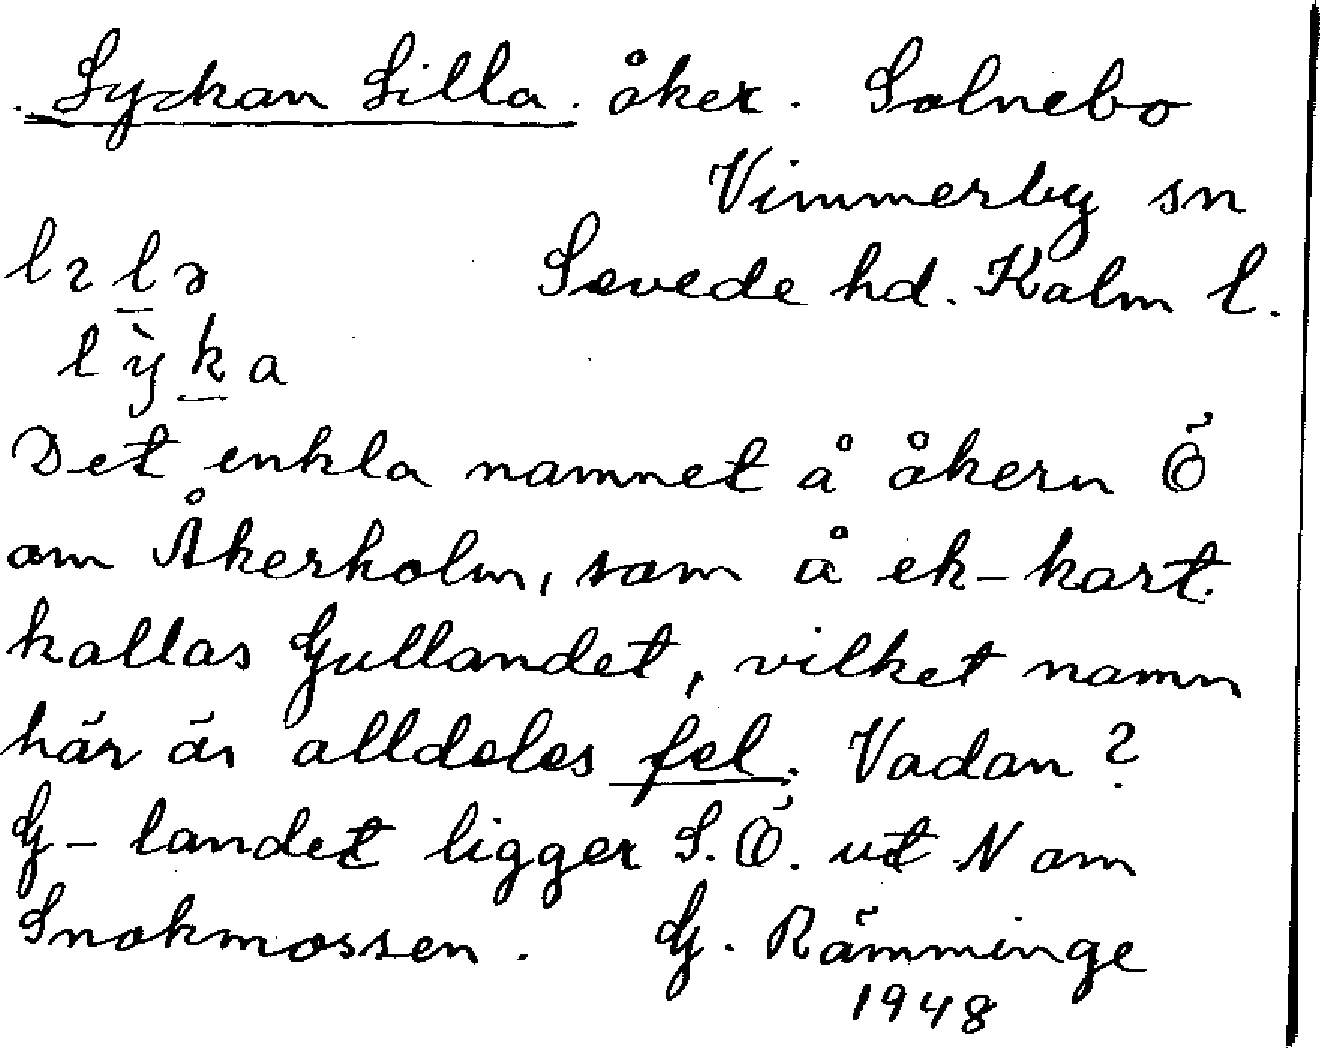 Lyckan Lilla. åker. Solnebo
Vimmerby sn
Sevede hd. Kalm l.
lılə
lỳka
Det enkla namnet å åkern Ö
om Åkerholm, som å ek-kart.
kallas Gullandet, vilket namn
här är alldeles fel. Vadan?
G-landet ligger S.Ö. ut N om
Snokmossen. G. Rämminge
1948